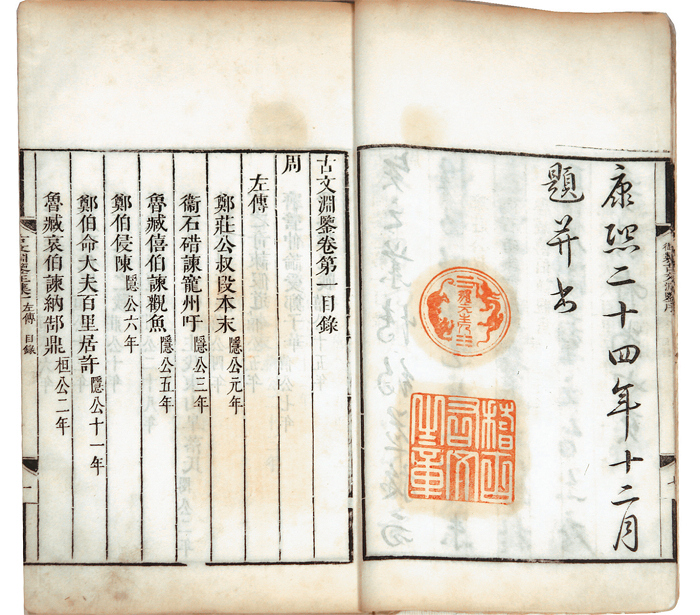 康熙二十四年十二月
題并書
體元主人
稽古右文之章
古文淵鑒卷第一目錄
周
左傳
鄭莊公叔段本末 隱公元年
衞石碏諫寵州吁 隱公三年
魯臧僖伯諫觀魚 隱公五年
鄭伯侵陳 隱公六年
鄭伯命大夫百里居許 隱公十一年
魯臧哀伯諫納郜鼎 桓公二年
左傳 目錄